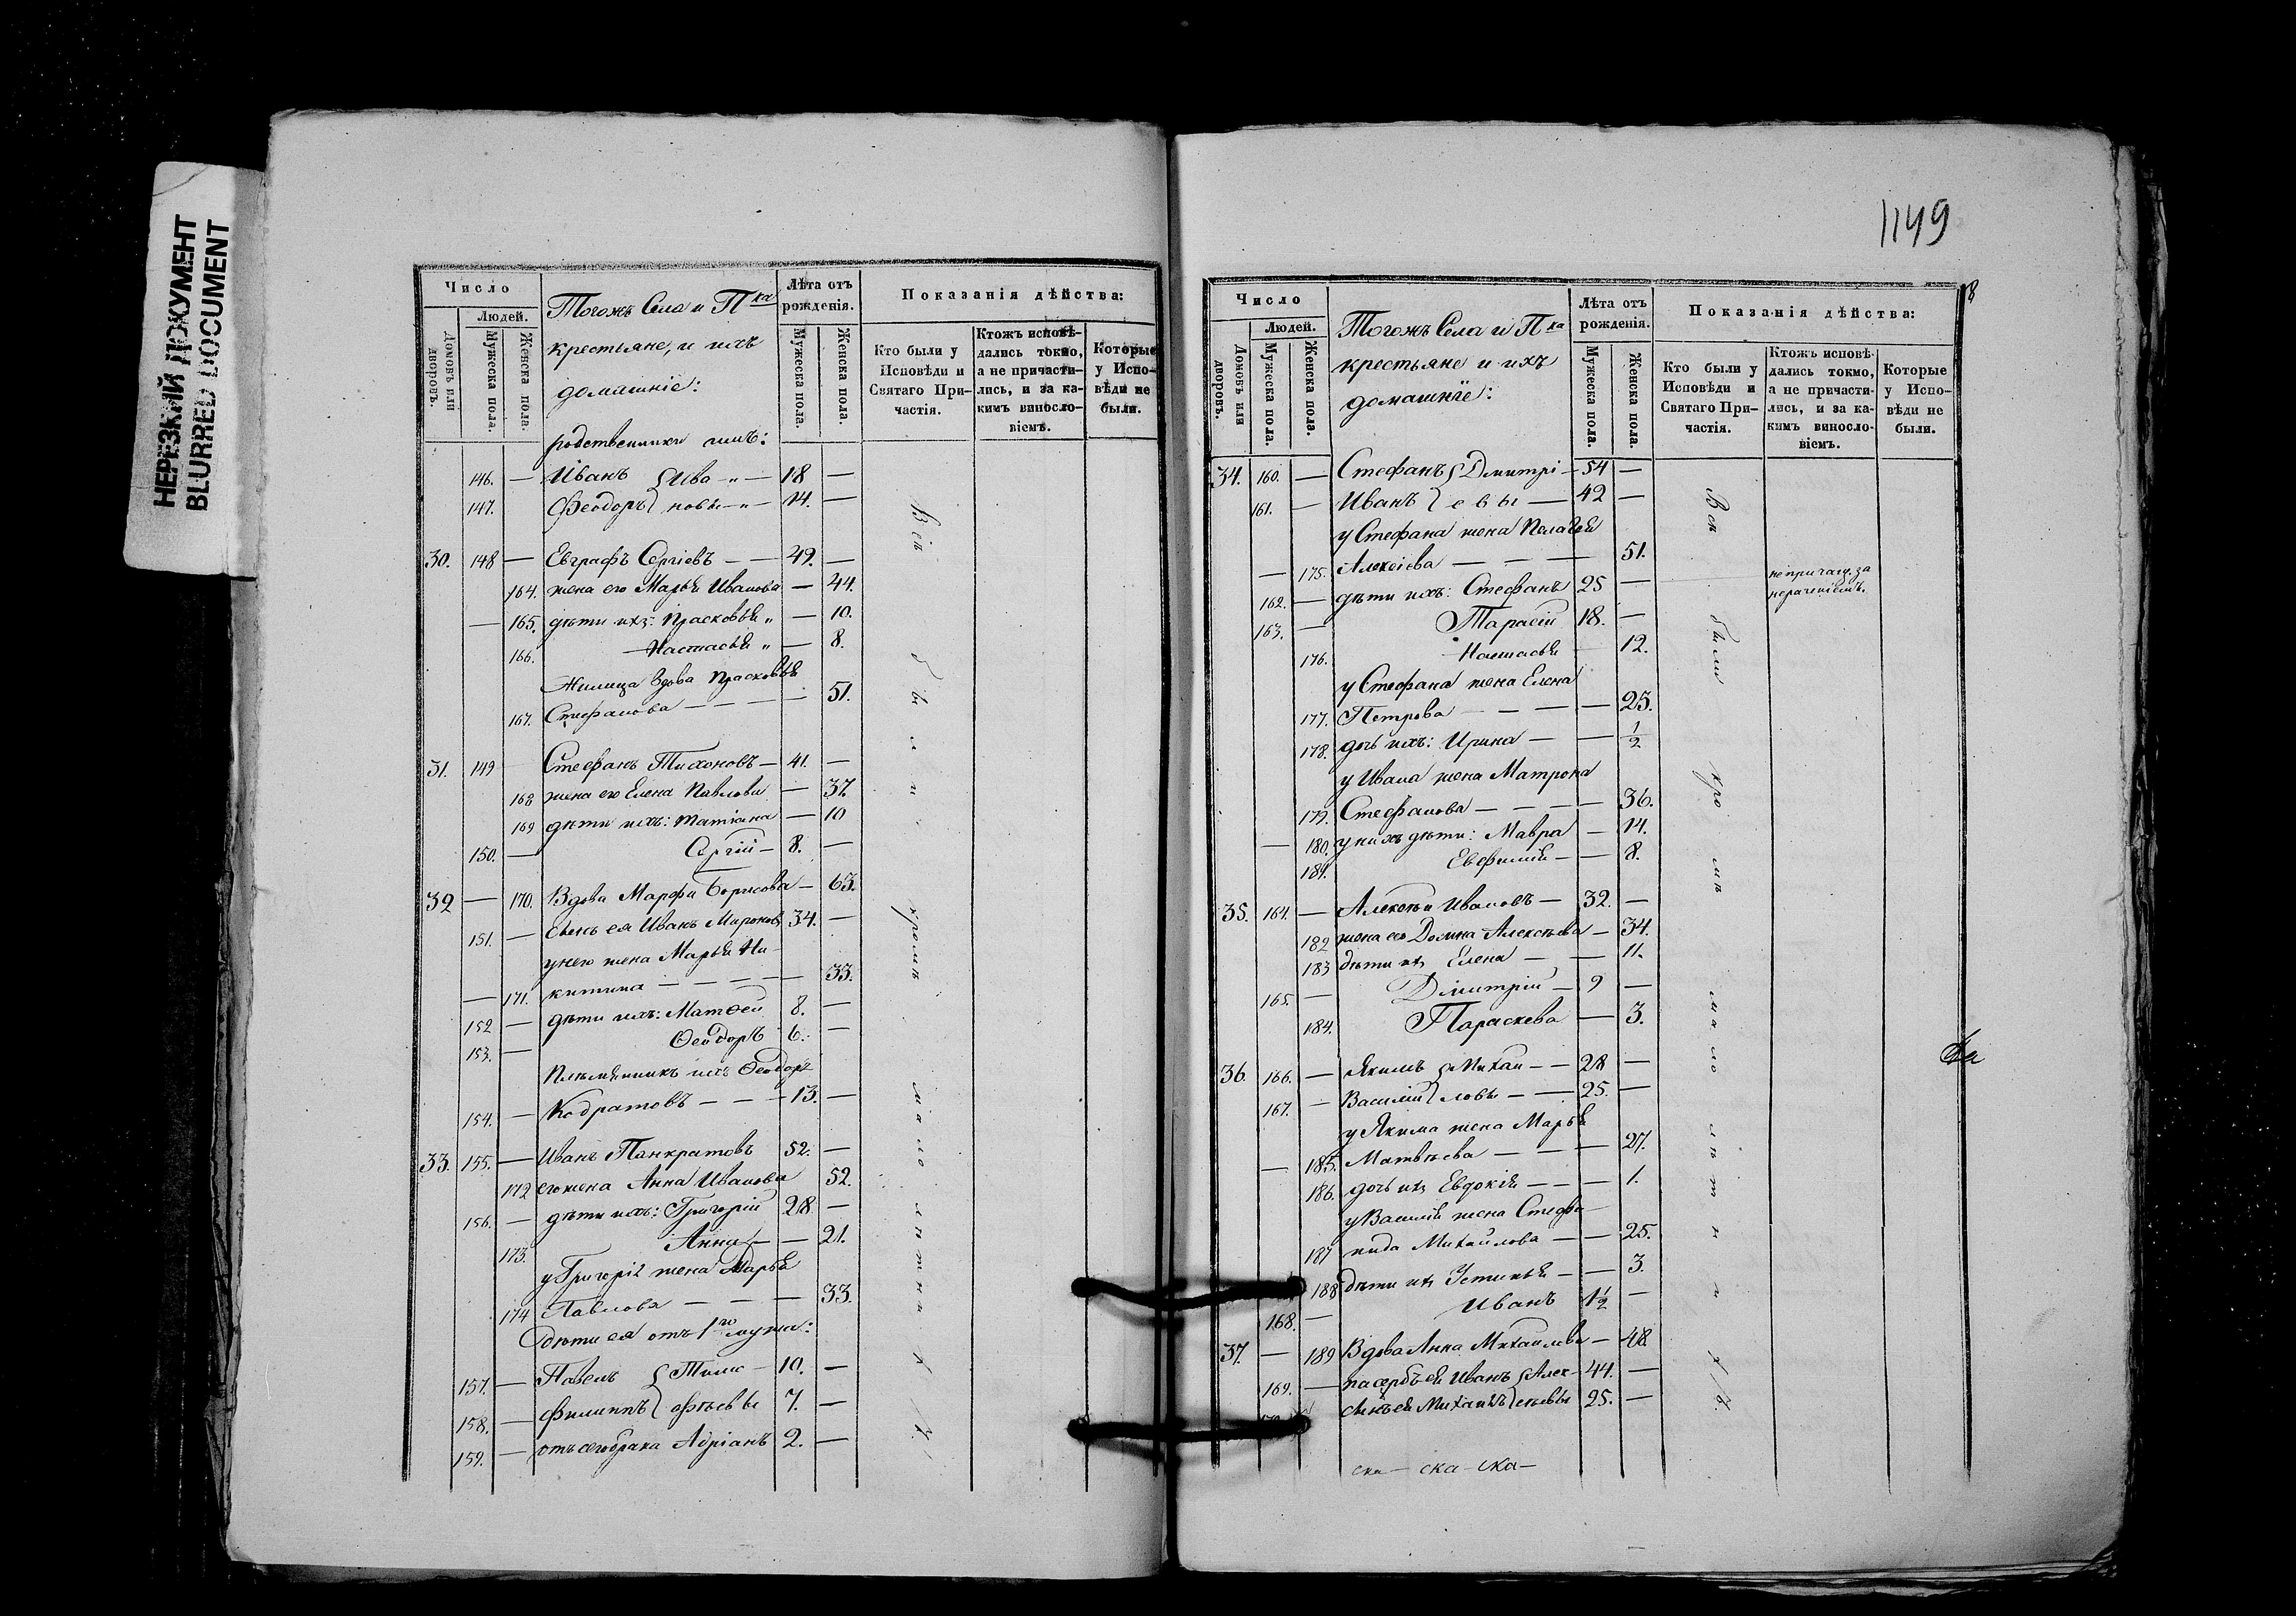 НЕРЕЗКИЙ ДОКУМЕНТ
BLURRED DOCUMENT
Число
Людей.
Домовъ или дворовъ.
Мужеска пола.
Женска пола.
Тогожъ Села и П<sup>ка</sup>
крестьяне, и ихъ
домашніе:
Лѣта отъ рожденія.
Мужеска пола.
Женска пола.
Показанія дѣйства:
Кто были у Исповѣди и Святаго Причастія.
Ктожъ исповѣдались токмо, а не причастились, и за какимъ винословіемъ.
Которые у Исповѣди не были.
родственники ихъ:
146. — Иванъ { Ива — 18 —
147. Феодоръ } новы — 14. —
30. 148 — Евграфъ Сергіевъ — — 49. —
164. жена его Марья Иванова — 44.
— 165. дѣти ихъ: Прасковья „ — 10.
166. Настасья „ — 8.
Жилица вдова Прасковья
167. Стефанова — — — — 51.
31. 149 Стефанъ Тихоновъ — 41. —
168 жена его Елена Павлова — 37.
169 дѣти ихъ: Татіана — 10
150. — Сергій — 8. —
32 — 170. Вдова Марфа Борисова — 63.
151. — сынъ ея Иванъ Мироновъ 34. —
у него жена Марья Ни-
— 171. китина — — — — — 33.
152 — дѣти ихъ: Матѳей 8. —
153. — Ѳеодоръ 6. —
Племянникъ ихъ Ѳеодоръ
154. — Кодратовъ — — — 13. —
33. 155. — Иванъ Панкратовъ 52. —
172 его жена Анна Иванова 52.
156. — дѣти ихъ: Григорій 28 —
173. Анна — — 21.
у Григорія жена Марья
174 Павлова — — — 33.
дѣти ея отъ 1<sup>го</sup> мужа:
157. — Павелъ { Тимо — 10. —
158. — Филиппъ } ѳѣевы 7. —
159. — отъ сего брака Адріанъ 2. —
Всѣ были кромѣ малолѣтныхъ.
1149
Число
Людей.
Домовъ или дворовъ.
Мужеска пола.
Женска пола.
Тогожъ Села и П<sup>ка</sup>
крестьяне и ихъ
домашніе:
Лѣта отъ рожденія.
Мужеска пола.
Женска пола.
Показанія дѣйства:
Кто были у Исповѣди и Святаго Причастія.
Ктожъ исповѣдались токмо, а не причастились, и за какимъ винословіемъ.
Которые у Исповѣди не были.
34. 160. — Стефанъ { Дмитрі — 54 —
161. — Иванъ } евы — 42 —
у Стефана жена Пелагея
— 175. Алексіева — — — 51.
162. — дѣти ихъ: Стефанъ 25 — не причащ. за нераченіемъ.
163. — Тарасій 18. —
176. Настасья 12.
у Стефана жена Елена
177. Петрова — — — — 25.
178. дочь ихъ: Ирина — — 1/2
у Ивана жена Матрона
179. Стефанова — — — — 36.
— 180. у нихъ дѣти: Мавра — 14.
181. Евфимія — — 8.
35. 164. — Алексѣй Ивановъ — 32. —
182 жена его Домна Алексѣева — 34.
183 дѣти ихъ Елена — — 11.
165. — Дмитрій — 9 —
184. Параскева — 3.
36. 166. — Якимъ { Михаи — — 28 —
167. — Василій } ловы — — 25. —
у Якима жена Марья
— 185. Матвѣева — — — 27.
186. дочь ихъ Евдокія — — — 1.
у Василія жена Стефа-
187 нида Михайлова — — 25.
188 дѣти ихъ Устинья — — 3.
168. — Иванъ 1 1/2 —
37. — 189 Вдова Анна Михайлова — 48.
169. — пасербъ ей Иванъ { Алек- 44. —
сынъ ея Михаилъ } сѣевы 25. —
Всѣ были кромѣ малолѣтныхъ.
ска — ска — ска —